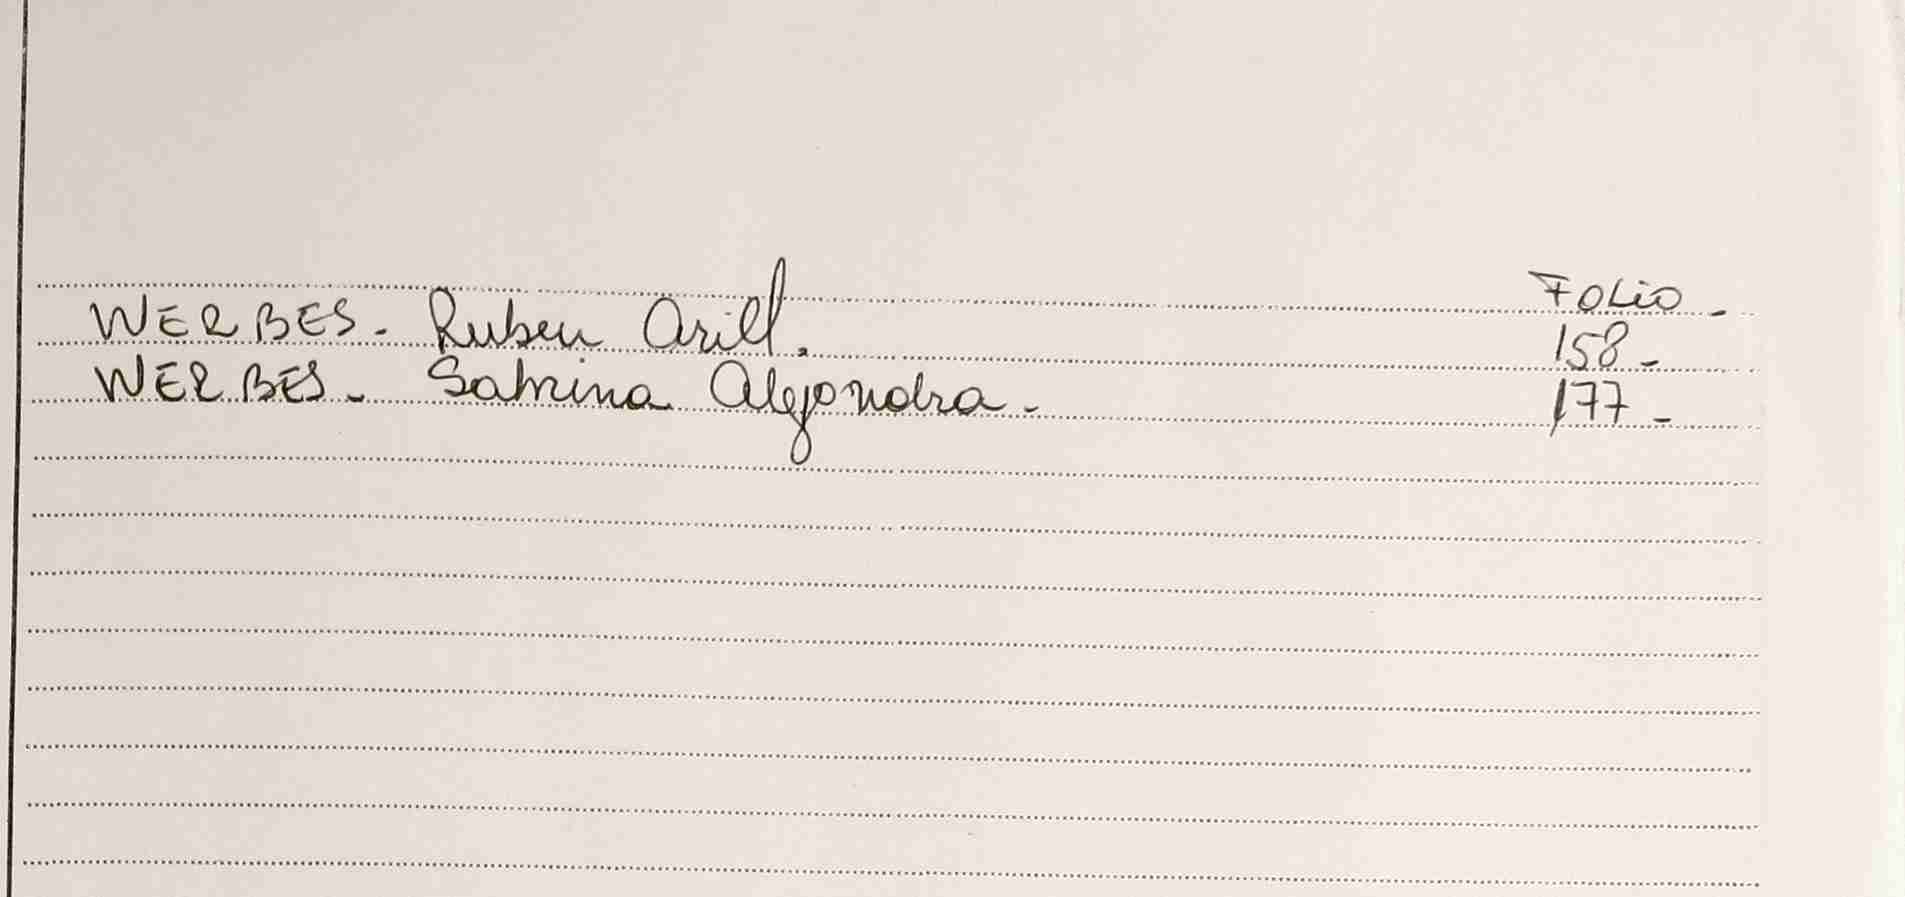 Folio -
WERBES. Ruben Ariel. 158 -
WERBES. Sabrina Alejandra - 177 -